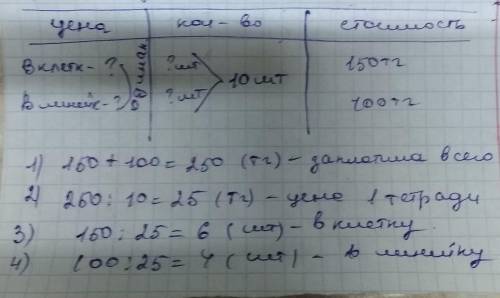 цена кол-во стоимость
В клетк-? ?шт 150тг
одинак 10шт
В линейк-? ?шт 100тг
1) 150 + 100 = 250 (тг) - заплатила всего
2) 250 : 10 = 25 (тг) - цена 1 тетради
3) 150 : 25 = 6 (шт) - в клетку.
4) 100 : 25 = 4 (шт) - в линейку